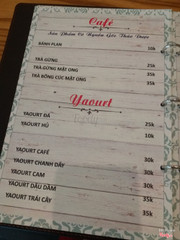 Café
Sản Phẩm Có Nguồn Gốc Thảo Dược
BÁNH FLAN 10k
TRÀ GỪNG 25k
TRÀ GỪNG MẬT ONG 35k
TRÀ BÔNG CÚC MẬT ONG 35k
Yaourt
YAOURT ĐÁ 25k
YAOURT HỦ 10k
YAOURT CAFÉ 30k
YAOURT CHANH DÂY 30k
YAOURT CAM 30k
YAOURT DÂU DẰM 35k
YAOURT TRÁI CÂY 35k